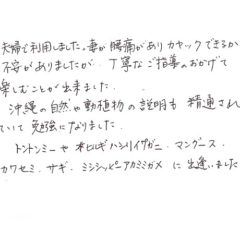 夫婦で利用しました。妻が腰痛がありカヤックできるか
不安がありましたが、丁寧なご指導のおかげで
楽しむことが出来ました。
沖縄の自然や動植物の説明も精通されて
いて勉強になりました。
トントンミーや オヒルギハシリイワガニ、マングース、
カワセミ、サギ、ミシシッピアカミミガメ に出逢いました